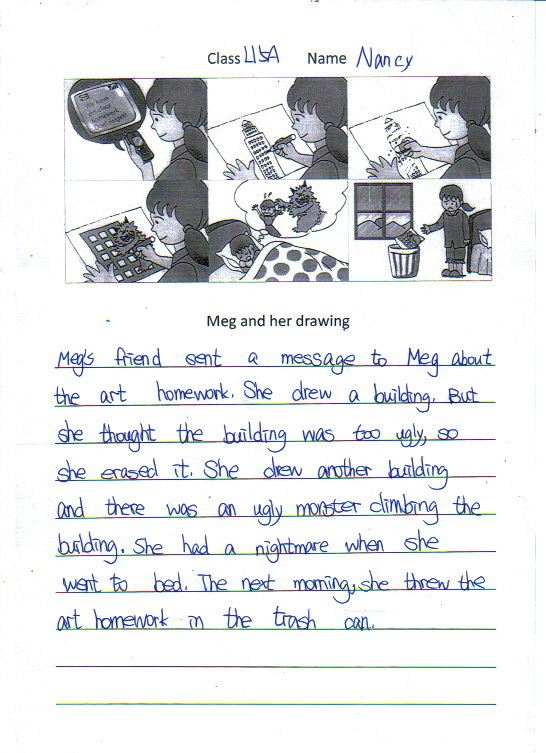 Class U5A Name Nancy
We have
art class
homework
Meg and her drawing
Meg's friend sent a message to Meg about
the art homework. She drew a building. But
she thought the building was too ugly, so
she erased it. She drew another building
and there was an ugly monster climbing the
building. She had a nightmare when she
went to bed. The next morning, she threw the
art homework in the trash can.